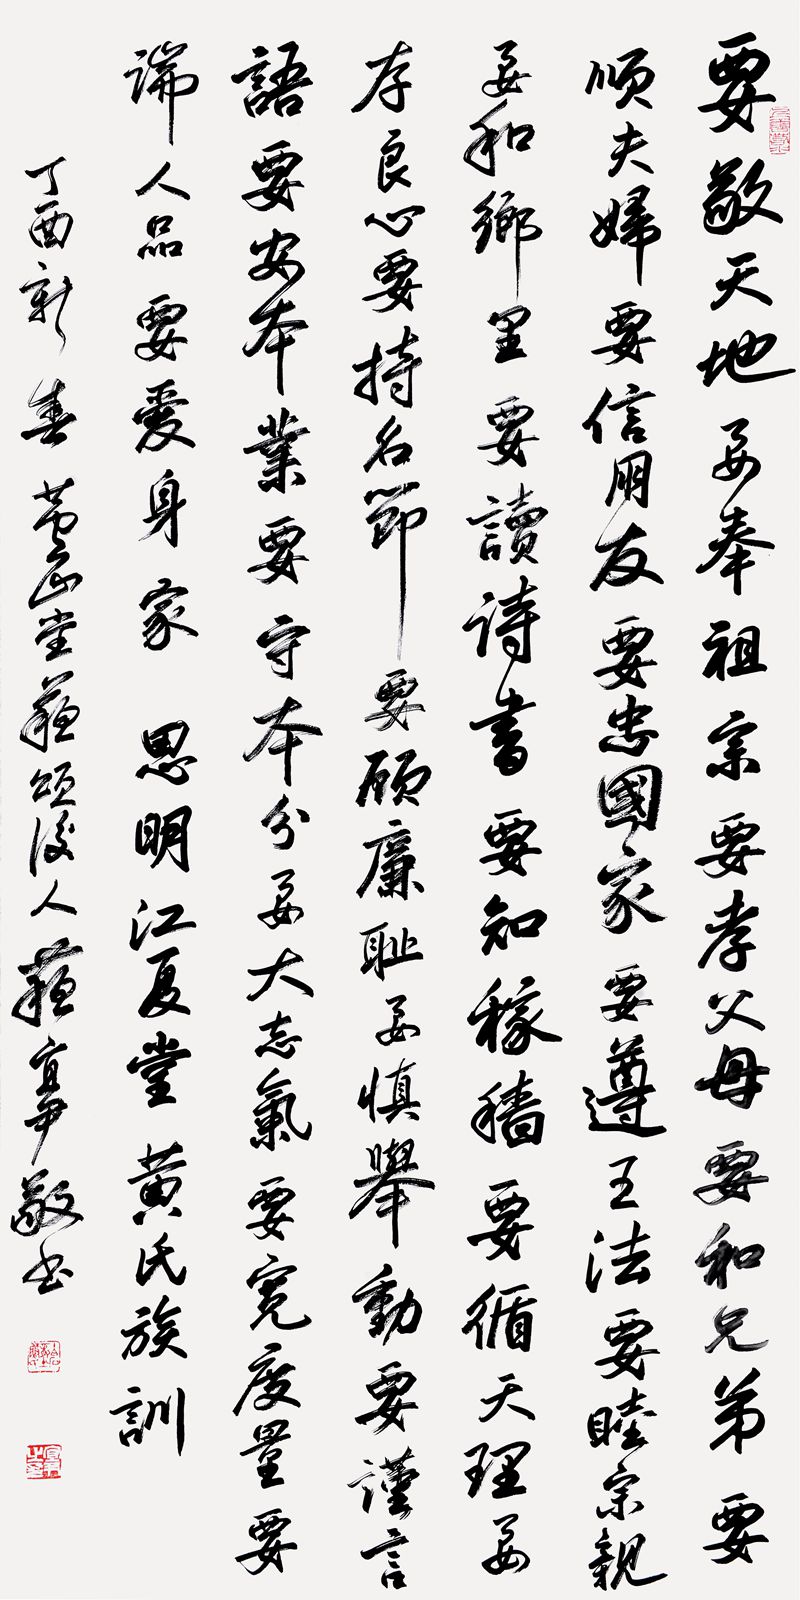 要敬天地要奉祖宗要孝父母要和兄弟要
順夫婦要信朋友要忠國家要遵王法要睦宗親
要和鄉里要讀詩書要知稼穡要循天理要
存良心要持名節要顧廉耻要慎舉動要謹言
語要安本業要守本分要大志氣要寬度量要
端人品要愛身家 思明江夏堂黄氏族訓
丁酉新春 蘆山堂蘇頌後人蘇 敬书